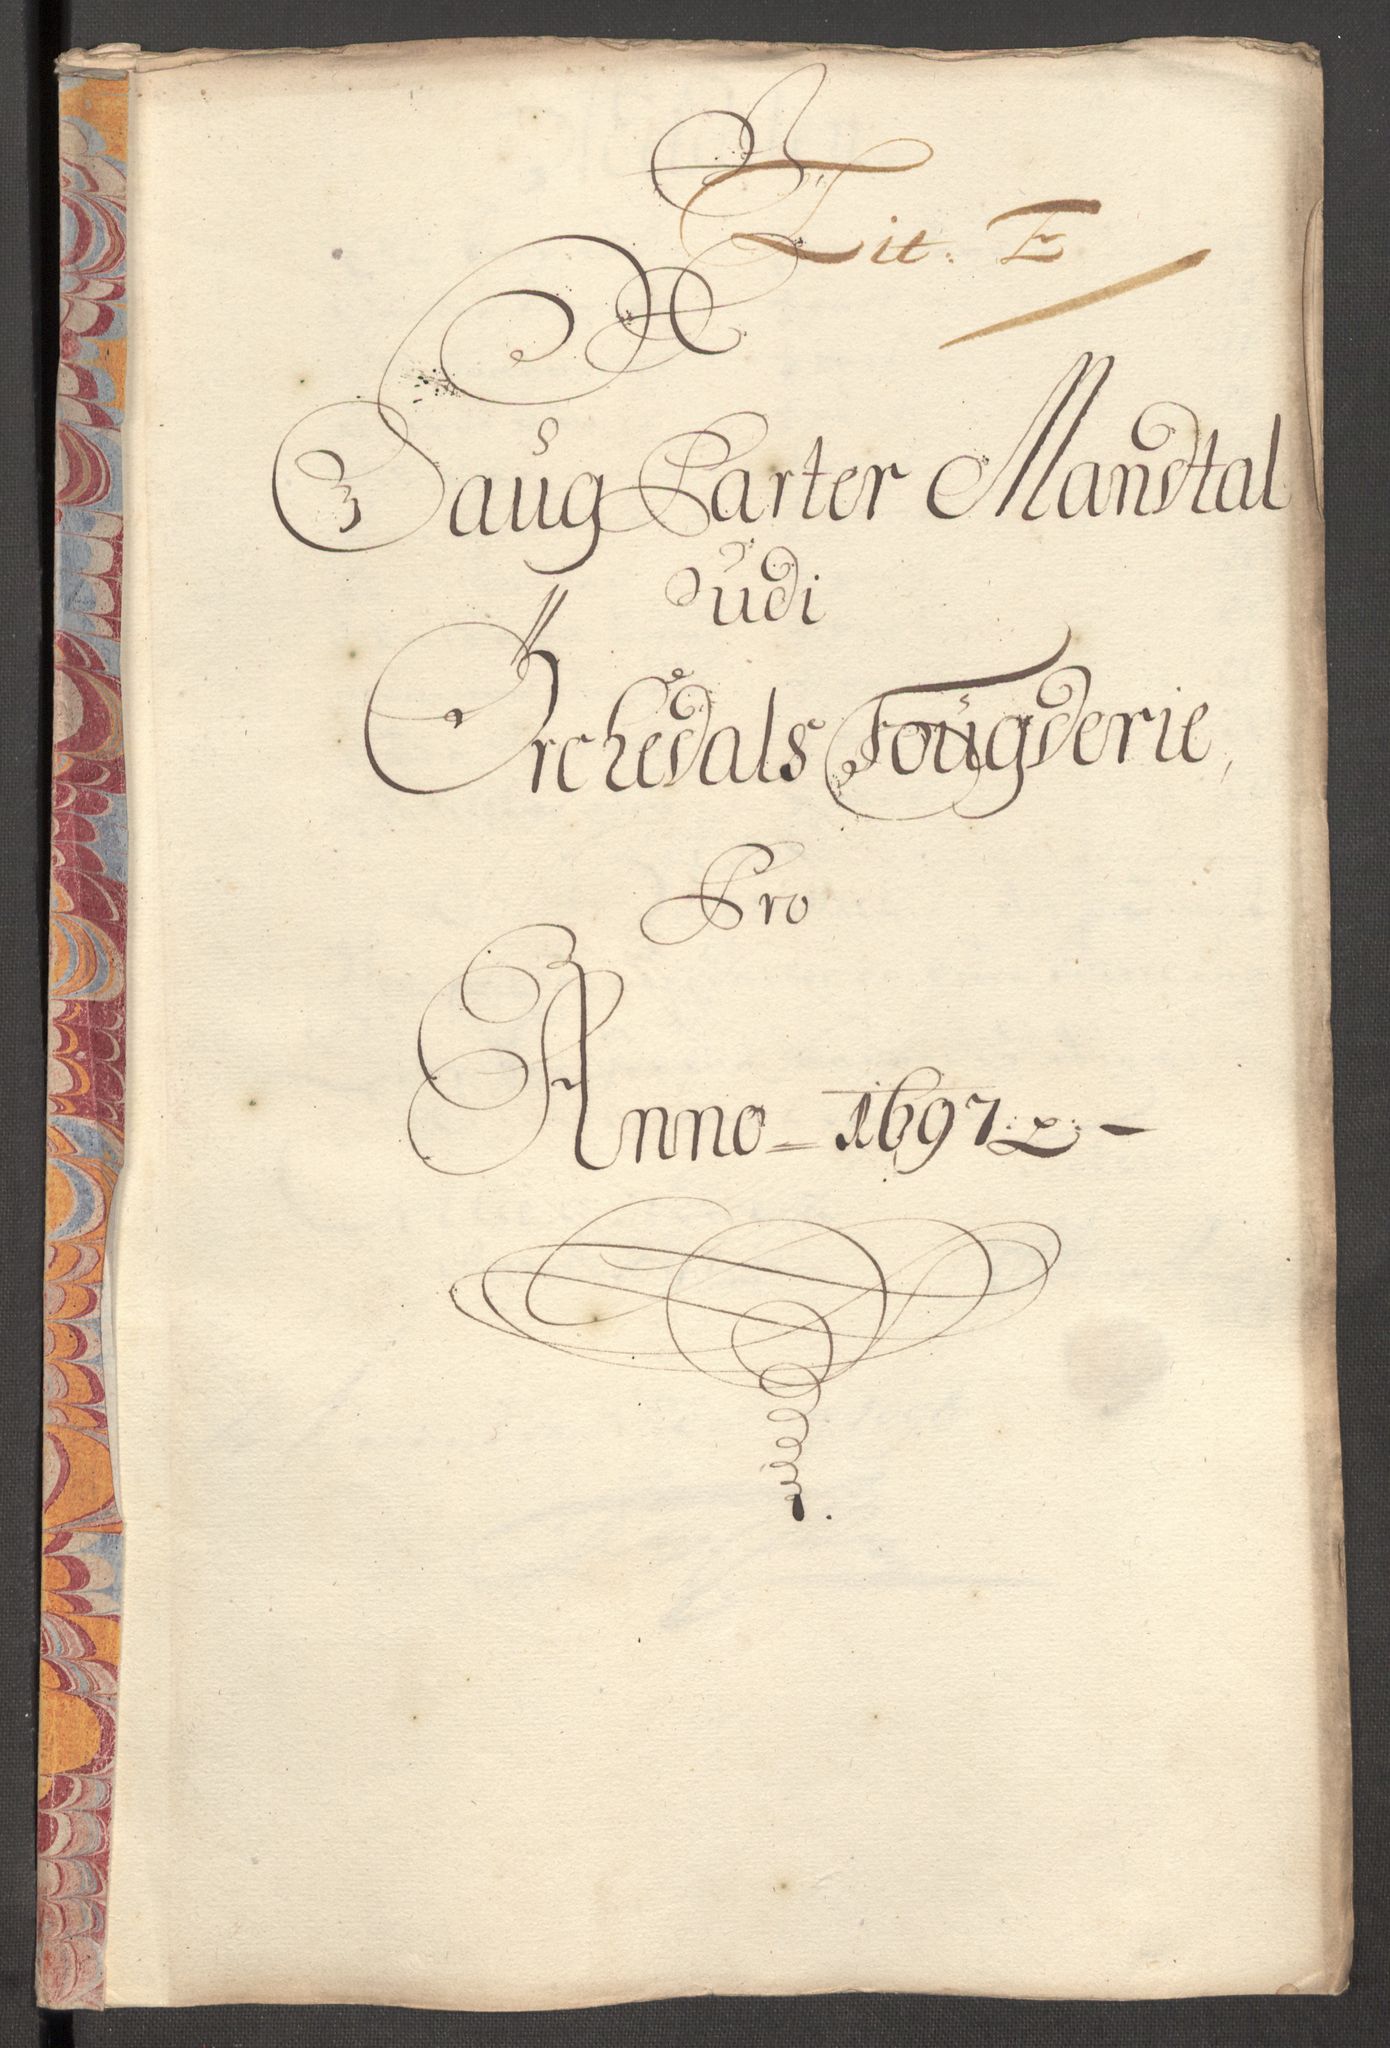 Lit. E
Saug Parter Mandtal
udi
Orchedals Fougderie,
Pro
Anno - 1697